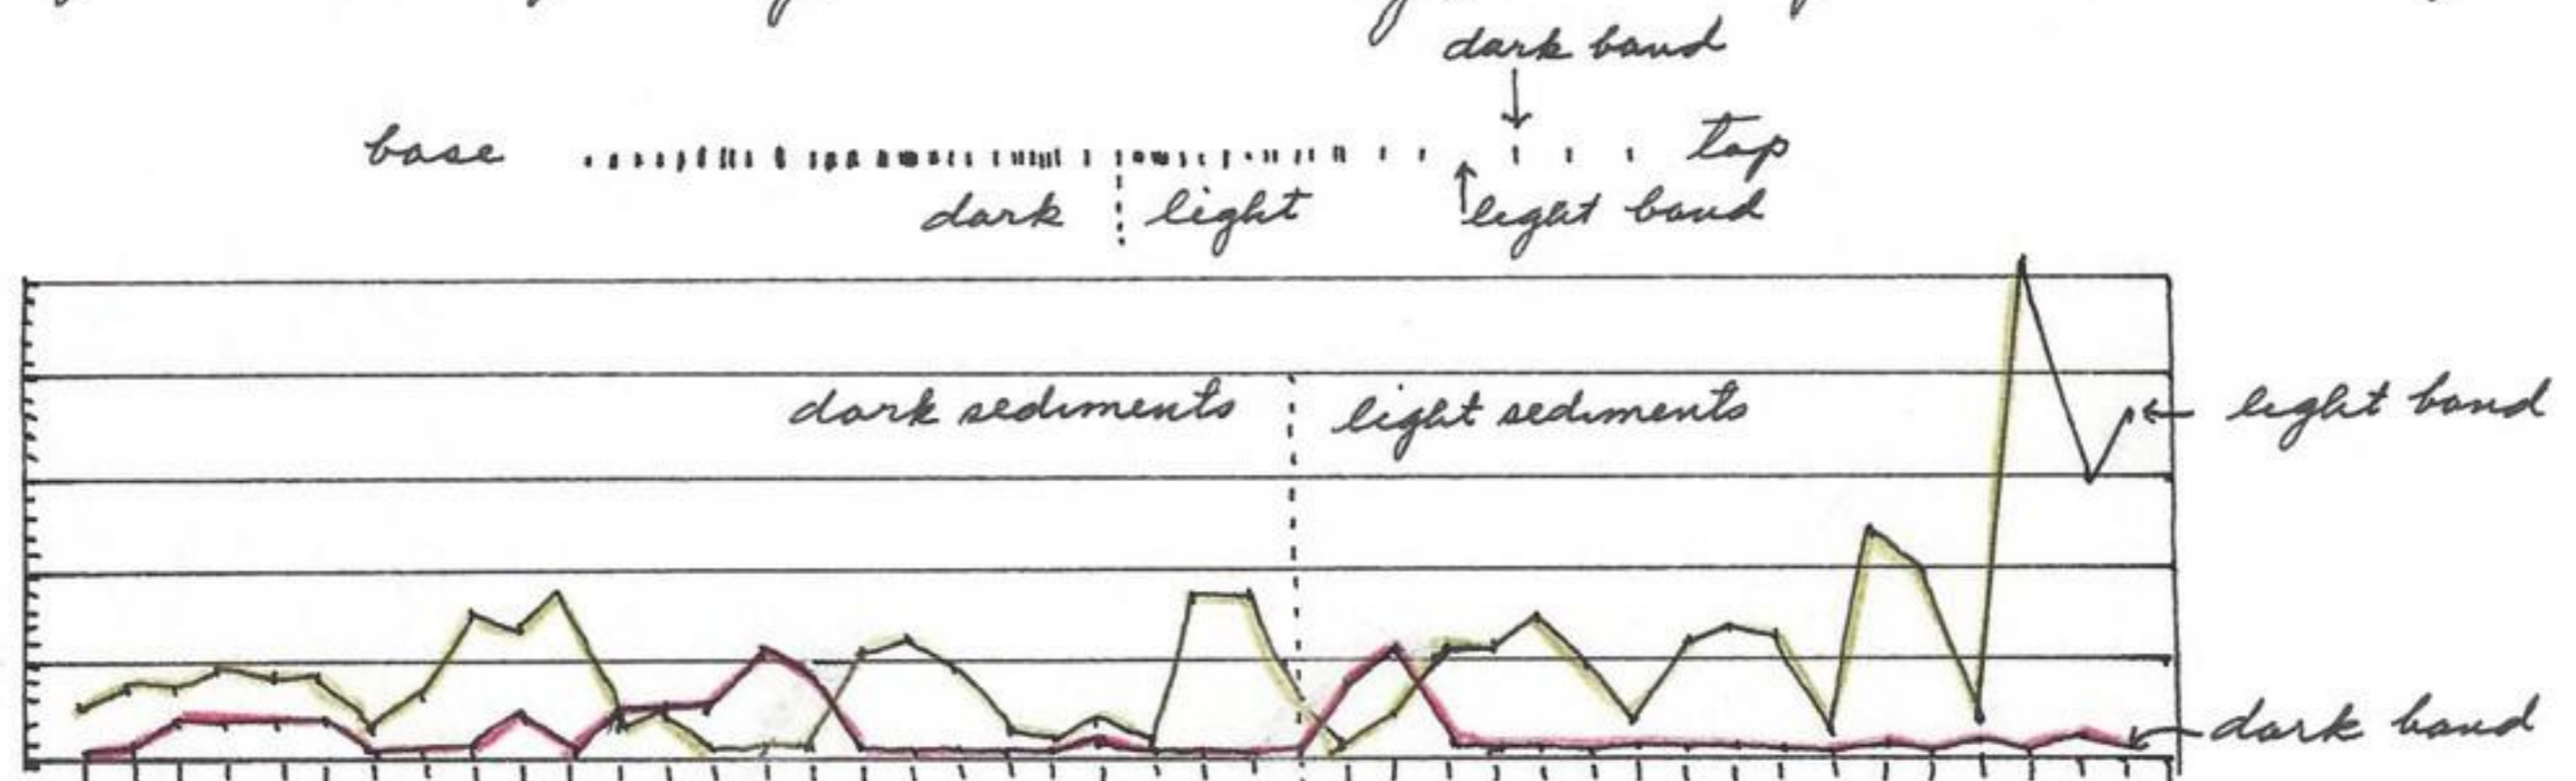 dark band
base
top
dark
light
light band
dark sediments
light sediments
light band
dark band